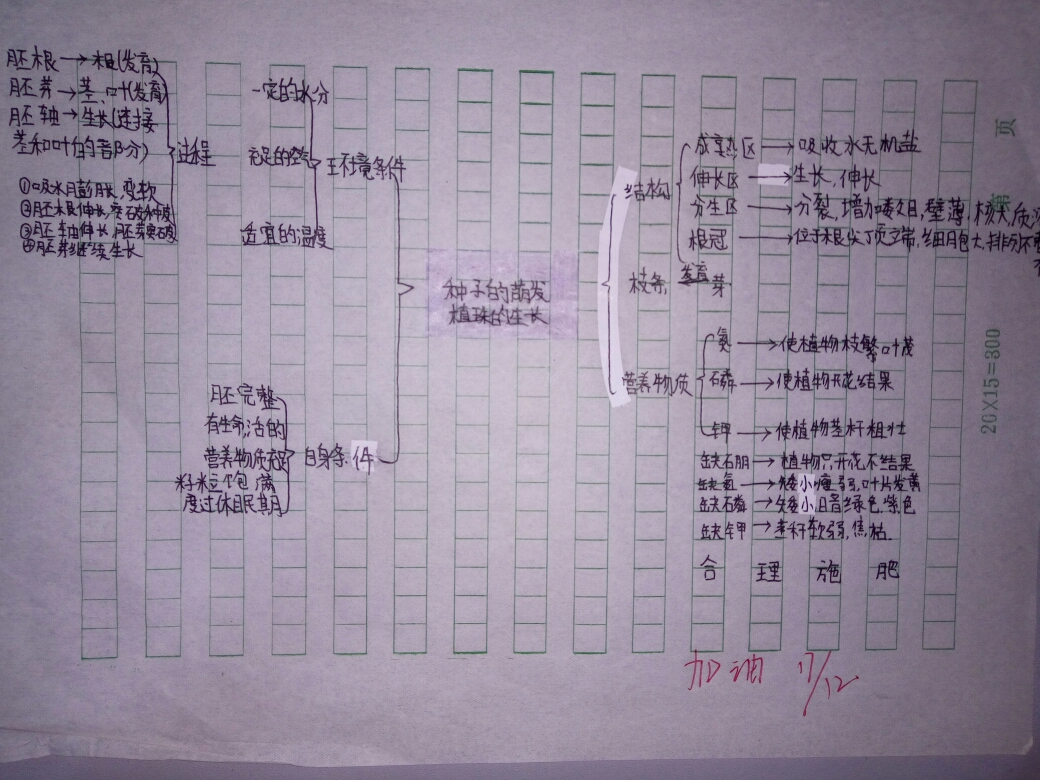 胚根→根(发育)
胚芽→茎、叶(发育)
胚轴→生长(连接
茎和叶的部分)
①吸水膨胀,变软
②胚根伸长,突破种皮
③胚轴伸长,胚芽突破
④胚芽继续生长
过程
一定的水分
充足的空气
适宜的温度
环境条件
胚完整
有生命活的
营养物质充足
籽粒饱满
度过休眠期
自身条件
种子的萌发
植珠的生长
结构
成熟区→吸收水无机盐
伸长区→生长,伸长
分生区→分裂,增加数目,壁薄,核大,质浓
根冠→位于根尖顶端,细胞大,排列不
枝条 发育 芽
营养物质
氨→使植物枝繁叶茂
磷→使植物开花结果
钾→使植物茎秆粗壮
缺硼→植物只开花不结果
缺氮→矮小瘦弱,叶片发黄
缺磷→矮小,暗绿色,紫色
缺钾→茎秆软弱,焦枯
合理施肥
加油 17/12
页
第
20X15=300